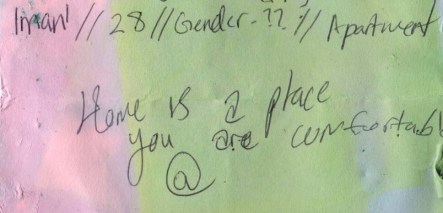 Iman // 28 // Gender - ?? // Apartment
Home is a place
you are comfortabl
@